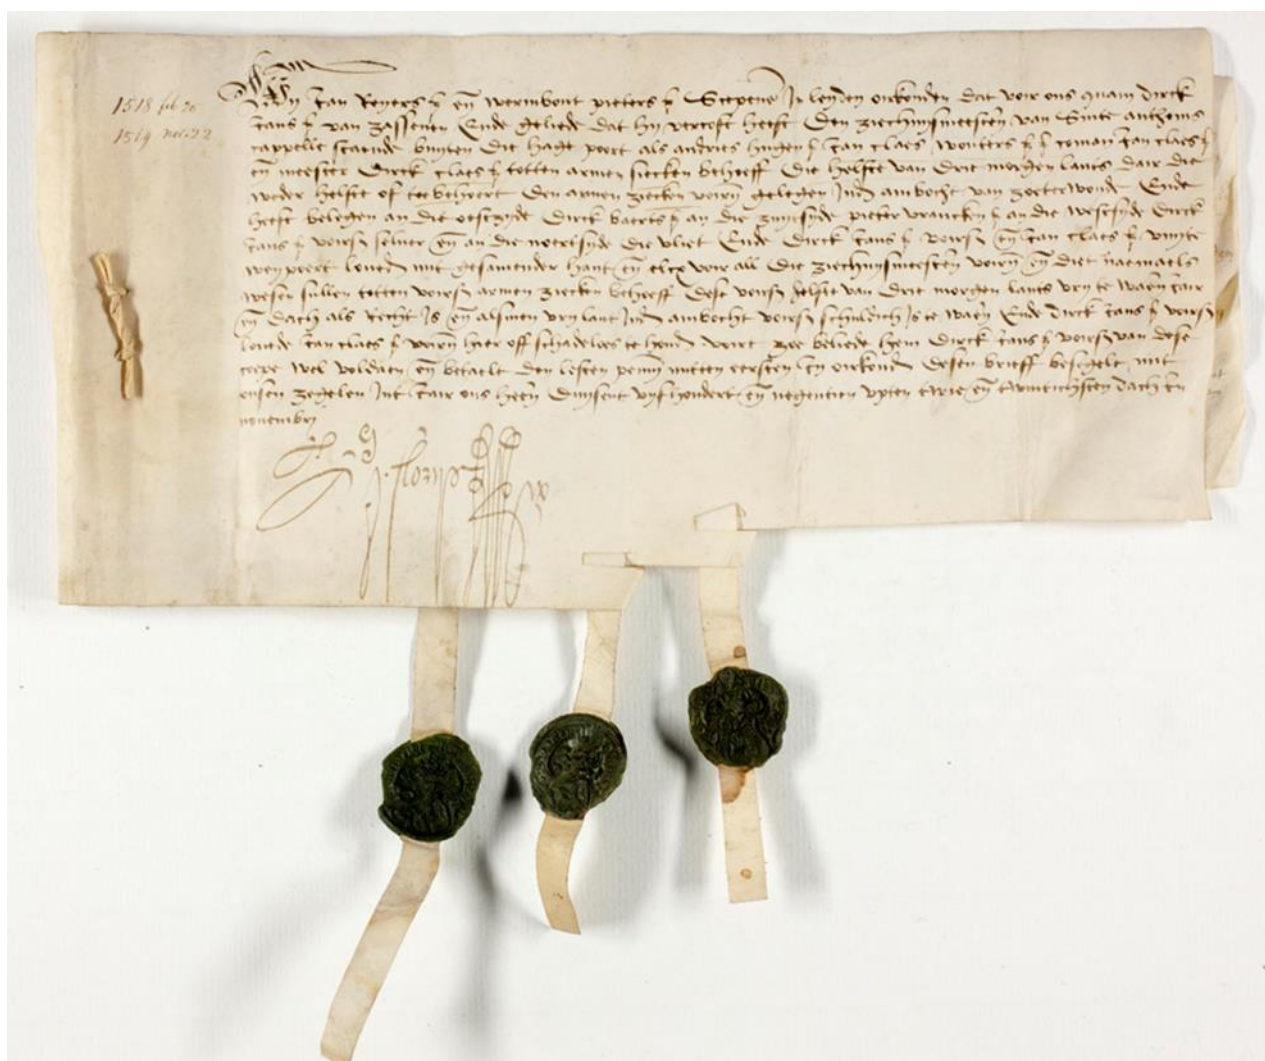 1518 feb 20
1519 nov. 22
Wy Jan Reyers z. en wermbout pieters z. Scepene In leyden oirkonden dat voir ons quam dirck
Jans z. van zassenen Ende geliede dat hy vercoft heeft den ziechuysmeesteren van Sinte anthonis
cappelle staende buyten die hage poert als andries hugen z. Jan claes wouters z. z. coman Jan claes z.
en meester Dirck claes z. totten armen siecken behoeff die helfte van drie morgen lants dair die
weder helft of toebehoert den armen ziecken voirn gelegen Ind ambocht van zoeterwoude Ende
heeft belegen an die oostzyde Dirck baerts z. an die zuytsyde pieter vrancken z. an die westsyde Dirck
Jans z. voirs selver en an die noertsyde die vliet Ende Dirck Jans z. voirs en Jan claes z. buyte
wey poert loveden mit gesamender hant en elcx voir all die ziechuysmeesteren voirn en diet naemaels
wesen sullen totten voirs armen ziecken behoeff dese voirs helfte van drie morgen lants vry te waeren Jair
en dach als recht Is en alsmen vry lant Ind ambocht voirs schuldich Is te waeren Ende dirck Jans z. voirs
loeude Jan claes z. voirn hier off schadeloes te houden voirt zoe beliede hem Dirck Jans z. voirs van dese
coepe wel voldaen en betaelt den lesten penn mitten eersten In oirkond desen brieff besegelt mit
onsen zegelen Int Jair ons heeren duysent vyfhondert en negentien upten twie en twintichsten dach In
novembri
J. florysz